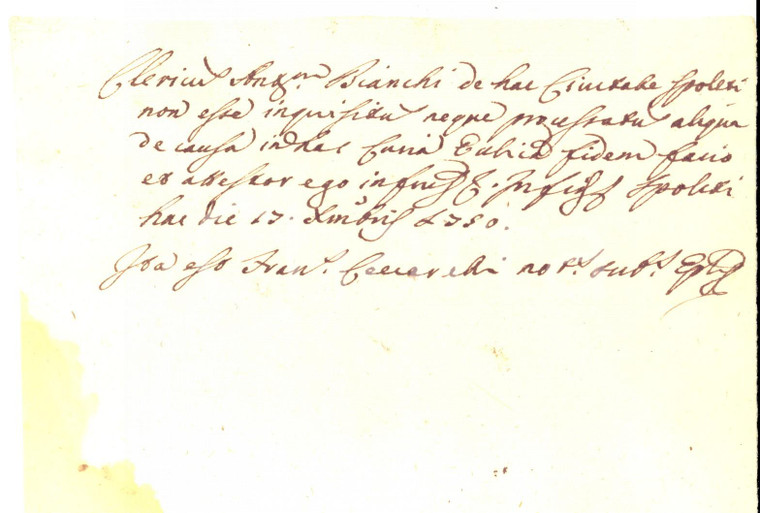 Clericũ Ant.m Bianchi de hac Civitate Spoleti
non esse inquisitũ neque processatũ aliqua
de causa in hac Curia fidem facio
et attestor ego Spoleti
hac die 17. Xmbris 1750.
Ita est Fran.s Ceccarelli not.s sub.s